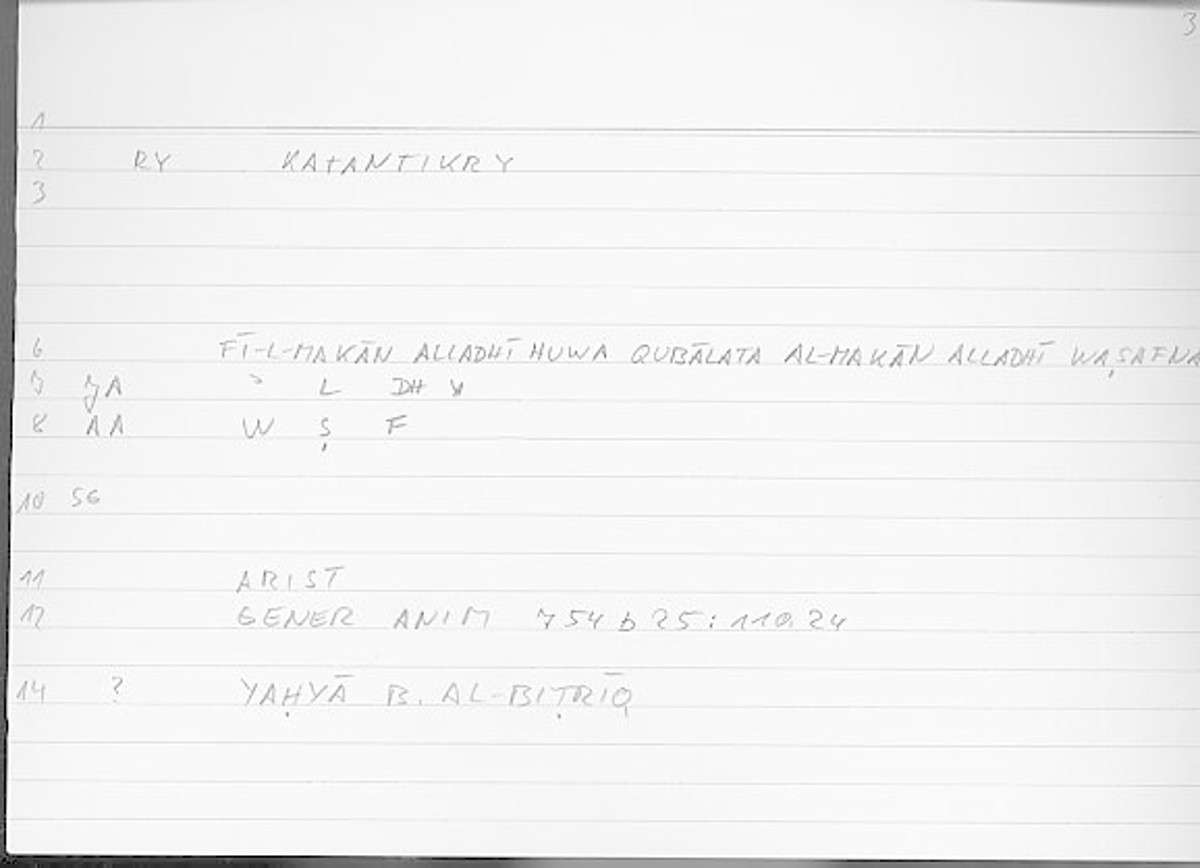 3
1
2 RY KATANTIKRY
3
6 FĪ-L-MAKĀN ALLADHĪ HUWA QUBĀLATA AL-MAKĀN ALLADHĪ WAṢAFNA
7 JA ʾ L DH Y
8 AA W Ṣ F
10 56
11 ARIST
12 GENER ANIM 754 b 25 : 110.24
14 ? YAḤYĀ B. AL-BIṬRĪQ